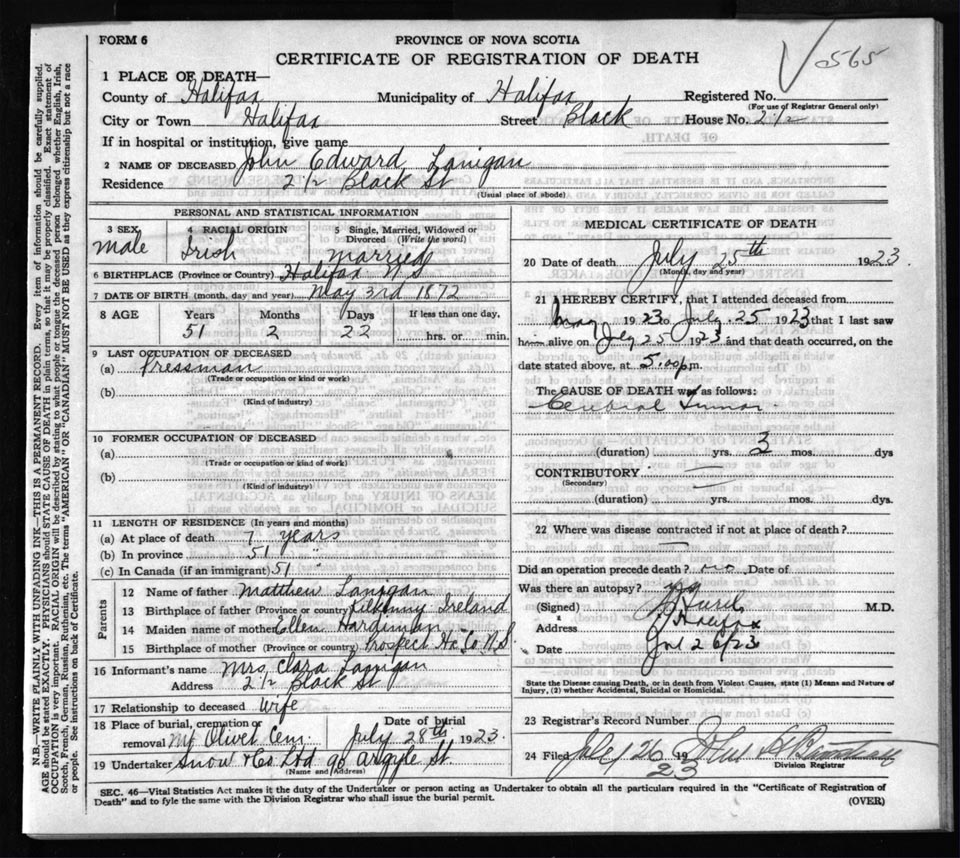 FORM 6
PROVINCE OF NOVA SCOTIA
CERTIFICATE OF REGISTRATION OF DEATH
565
1 PLACE OF DEATH—
County of Halifax Municipality of Halifax Registered No.
(For use of Registrar General only)
City or Town Halifax Street Black House No. 2 1/2
If in hospital or institution, give name
2 NAME OF DECEASED John Edward Lanigan
Residence 2 1/2 Black St
(Usual place of abode)
PERSONAL AND STATISTICAL INFORMATION
3 SEX male
4 RACIAL ORIGIN Irish
5 Single, Married, Widowed or Divorced (Write the word) married
6 BIRTHPLACE (Province or Country) Halifax N S
7 DATE OF BIRTH (month, day and year) May 3rd 1872
8 AGE Years Months Days If less than one day,
51 2 22 hrs. or min.
9 LAST OCCUPATION OF DECEASED
(a) Pressman
(Trade or occupation or kind or work)
(b)
(Kind of industry)
10 FORMER OCCUPATION OF DECEASED
(a)
(Trade or occupation or kind or work)
(b)
(Kind of industry)
11 LENGTH OF RESIDENCE (In years and months)
(a) At place of death 7 years
(b) In province 51 "
(c) In Canada (if an immigrant) 51 "
Parents
12 Name of father Matthew Lanigan
13 Birthplace of father (Province or country) Kilkenny Ireland
14 Maiden name of mother Ellen Hardiman
15 Birthplace of mother (Province or country) Prospect Hx Co N.S
16 Informant's name Mrs. Clara Lanigan
Address 2 1/2 Black St
17 Relationship to deceased Wife
18 Place of burial, cremation or removal Mt Olivet Cem.
Date of burial July 28th 1923.
19 Undertaker Snow & Co Ltd 90 Argyle St.
(Name and Address)
MEDICAL CERTIFICATE OF DEATH
20 Date of death July 25th 1923.
(Month, day and year)
21 I HEREBY CERTIFY, that I attended deceased from
May 1923 to July 25 1923 that I last saw
him alive on July 25 1923 and that death occurred, on the
date stated above, at 5.00 p.m.
The CAUSE OF DEATH was as follows:
Cerebral Tumor
(duration) yrs. 3 mos. dys
CONTRIBUTORY
(Secondary)
(duration) yrs. mos. dys.
22 Where was disease contracted if not at place of death?
Did an operation precede death? no Date of
Was there an autopsy? no
(Signed) M.D.
Address Halifax
Date Jul 26/23
State the Disease causing Death, or in death from Violent Causes, state (1) Means and Nature of
Injury, (2) whether Accidental, Suicidal or Homicidal.
23 Registrar's Record Number
24 Filed July 26 1923
Division Registrar
SEC. 46—Vital Statistics Act makes it the duty of the Undertaker or person acting as Undertaker to obtain all the particulars required in the "Certificate of Registration of
Death" and to fyle the same with the Division Registrar who shall issue the burial permit.
(OVER)
N.B.—WRITE PLAINLY WITH UNFADING INK—THIS IS A PERMANENT RECORD. Every item of information should be carefully supplied.
AGE should be stated EXACTLY. PHYSICIANS should STATE CAUSE OF DEATH in plain terms, so that it may be properly classified. Exact statement of
OCCUPATION is very important. RACIAL ORIGIN will be described by stating to what people or tongue the deceased person belonged whether English, Irish,
Scotch, French, German, Russian, Ruthenian, etc. The terms "AMERICAN" OR "CANADIAN" MUST NOT BE USED as they express citizenship but not a race
or people. See instructions on back of Certificate.